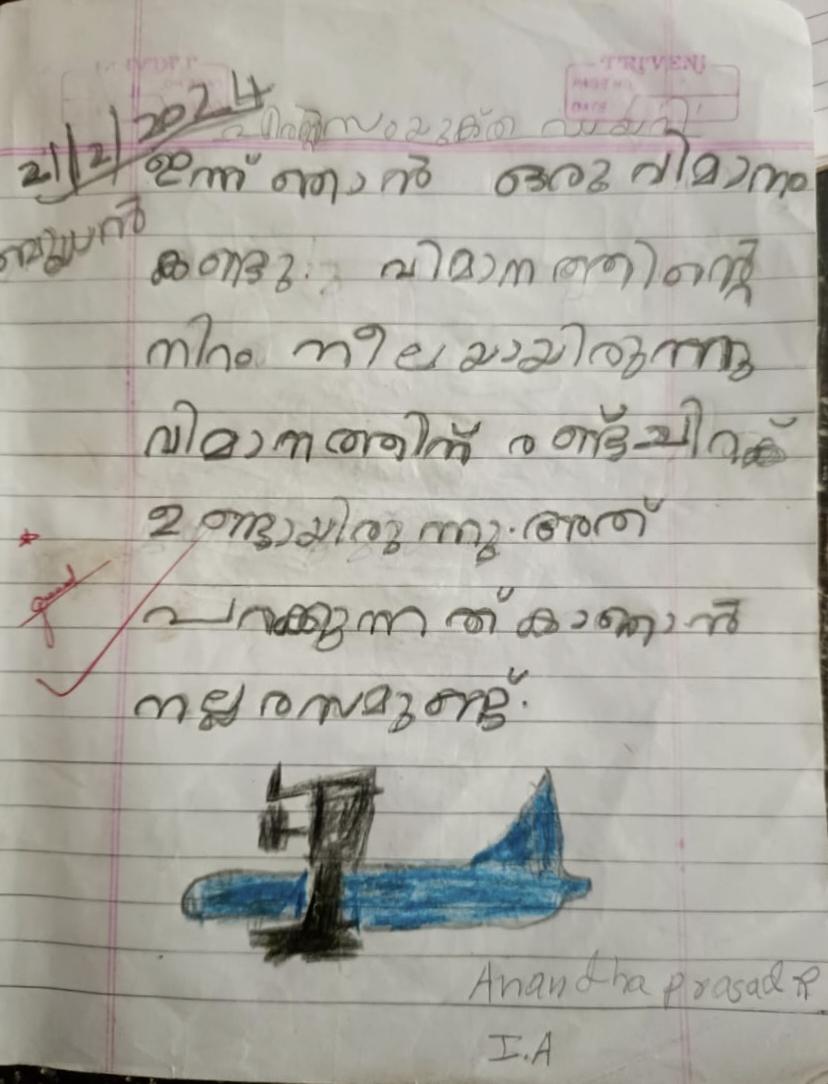 TRIVENI
PAGE NO
DATE
21/2/2024
സംയുക്ത ഡയറി
ഇന്ന് ഞാൻ ഒരു വിമാനം
ബുധൻ
കണ്ടു. വിമാനത്തിന്റെ
നിറം നീലയായിരുന്നു
വിമാനത്തിന് രണ്ട് ചിറക്
ഉണ്ടായിരുന്നു. അത്
പറക്കുന്നത് കാണാൻ
നല്ല രസമുണ്ട്.
Anandha prasad P
I.A